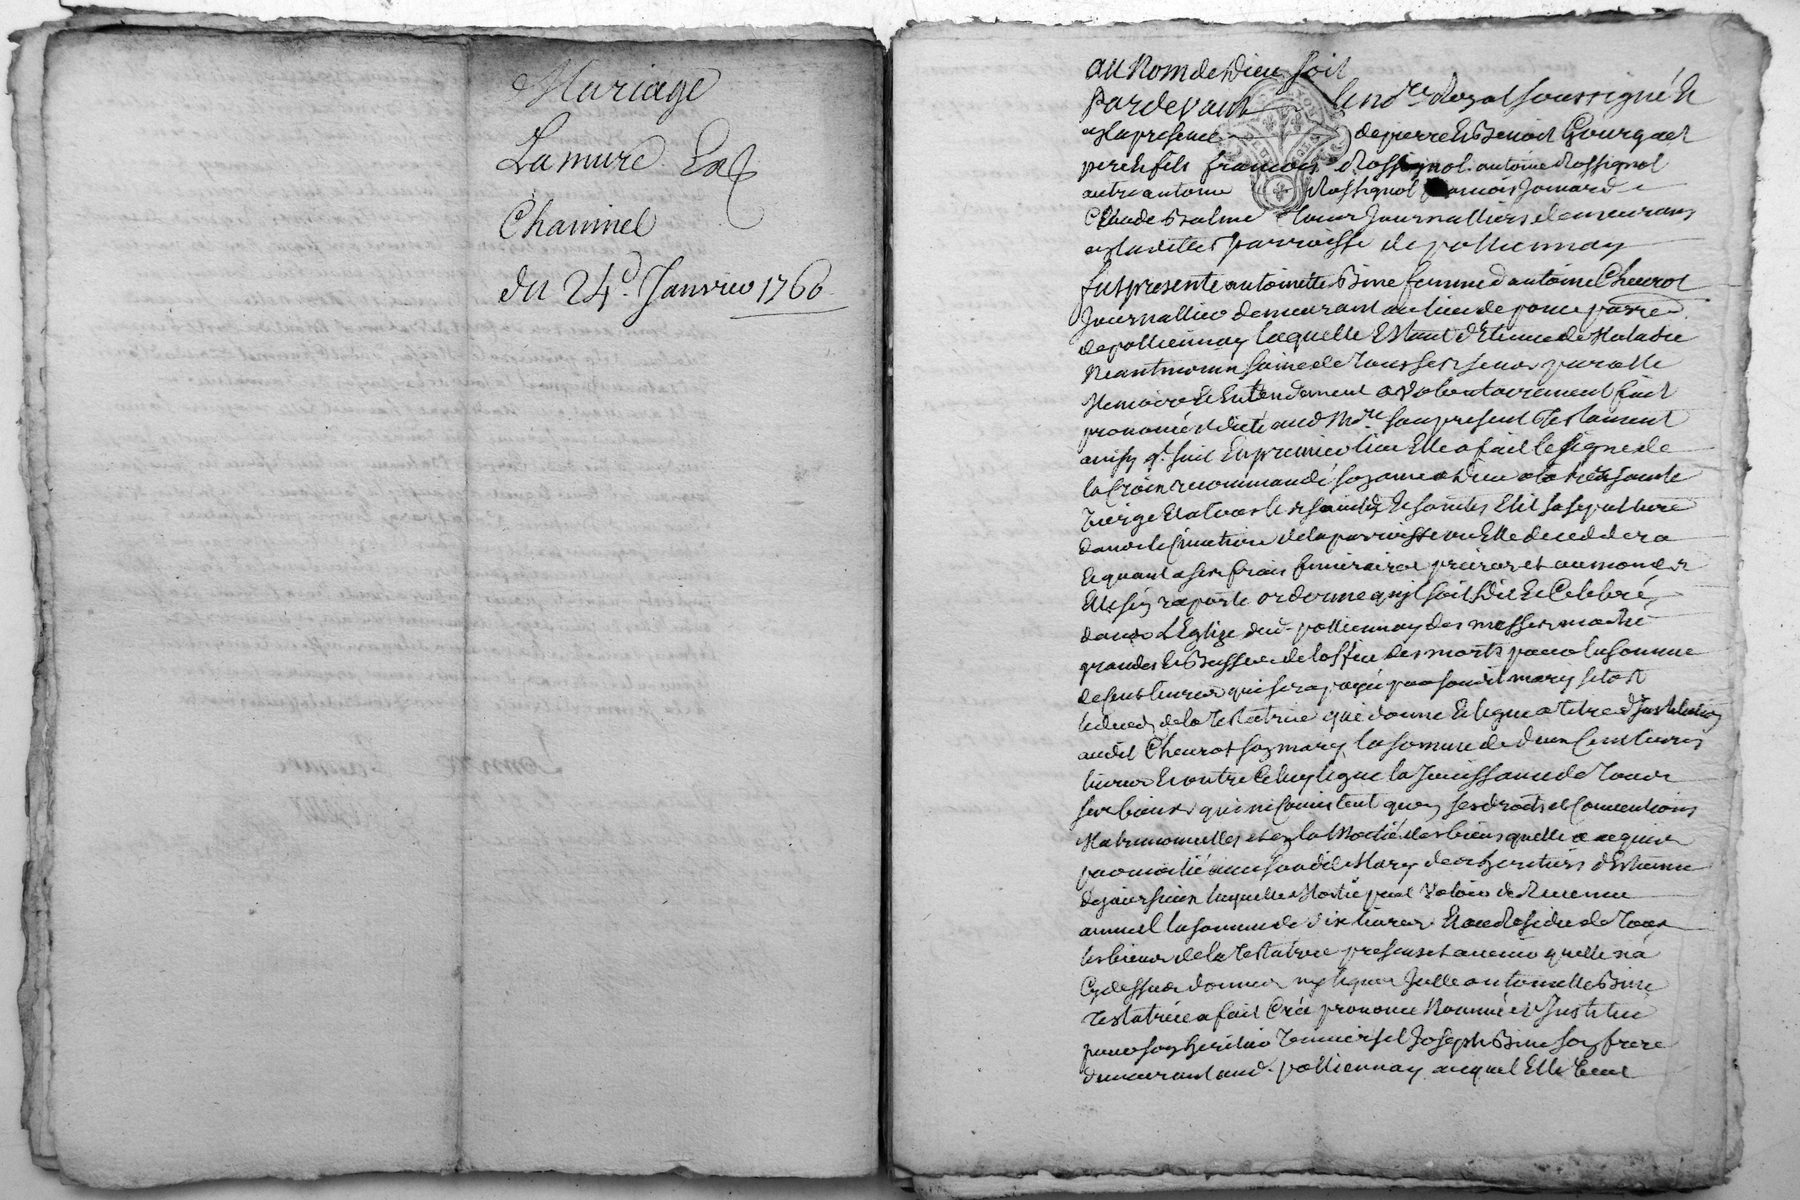 Mariage
Lamure Et
Chaninel
du 24e Janvier 1760
au Nom de Dieu soit
Pardevant le no.re Royal soussigné Et
en la presence de pierre Et Benoist Gourgaet
pere et fils francois Rossignol antoine Rossignol
autre antoine Rossignol Jomard
Claude Balme tous Journalliers demeurans
en laditte parroisse de pollionnay
fut presente antoinette Bine femme d'antoine Cheurot
Journallier demeurant au lieu de parre
de pollionnay laquelle Estant detenue de Maladie
Neantmoins saine de tous ses sens parolle
Memoire et Entendement a Volontairement fait
prononcé et dicté aud No.re son present Testament
ainsy q. suit En premier lieu Elle a fait le signe de
la Croix recommandé son ame a Dieu a la tres sainte
Vierge Et a tous les saints Et saintes Elit sa sepulture
dans le Cimetiere de la parroisse ou Elle decedera
Et quant a ses frais funeraires prieres et aumones
Elle s'en raporte ordonne qu'il soit dit Et Celebré
dans L'Eglise dud. pollionnay des messes moitié
grandes Et Basses de l'office des morts pour la somme
de livres qui sera payée par sondit mary sitost
le deced de la Testatrice qui donne Et legue a titre d'Institution
audit Cheurot son mary la somme de deux Cent livres
livres Et outre Ce luy legue la Jouissance de tous
ses biens qui ne Consistent qu'en ses droits et Conventions
Matrimonielles et en la Moitié des biens quelle a acquis
par moitié avec sondit Mary des heritiers d'Estienne
laquelle Moitié peut Valoir de Revenu
annuel la somme de dix livres Et au Residu de tous
les biens de la Testatrice presens et avenir quelle n'a
Cy dessus donnes ny legues Icelle antoinette Bine
Testatrice a fait Créé prononcé Nommé et Institue
pour son heritier universel Joseph Bine son frere
demeurant aud. pollionnay auquel Elle Veut